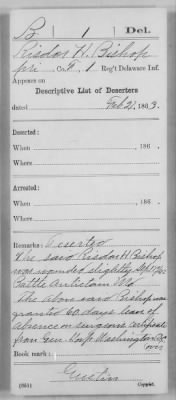 B | 1 | Del.
Risdon H. Bishop
pri Co. F, 1 Reg't Delaware Inf.
Appears on
Descriptive List of Deserters
dated Feb 21, 1863.
Deserted:
When , 186 .
Where
Arrested:
When , 186 .
Where
Remarks: Deserted
The said Risdon H Bishop
was wounded slightly Sept 17/62
Battle Antietam Md
The above said Bishop was
granted 60 days leave of
absence on surgeons certificate
from Gen. Hosp. Washington DC
over
Book mark:
Gustin
Copyist.